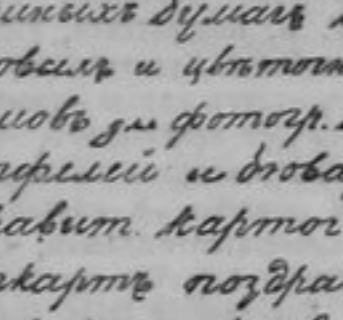 шныхъ бумагъ
овыхъ и цвѣточн
мовъ для фотогр.
афелей и бюва
авит. картог
ткартъ поздра